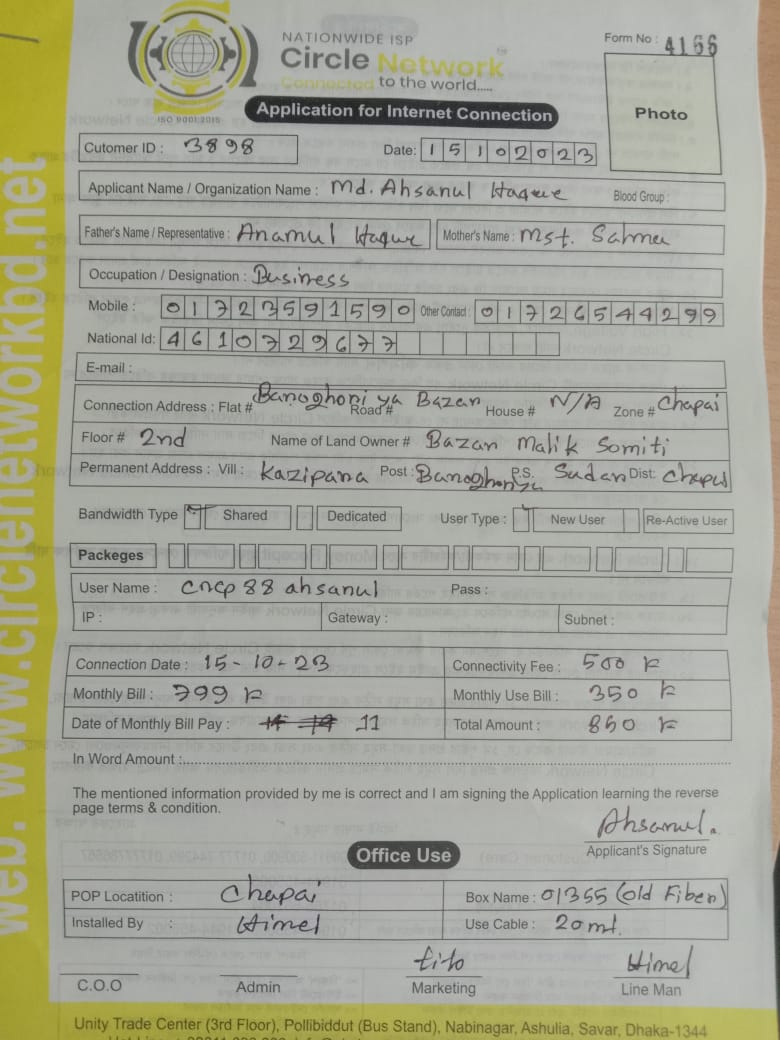 NATIONWIDE ISP
Circle Network
Connected to the world.....
ISO 9001:2015
Form No : 4166
Application for Internet Connection
Photo
Cutomer ID : 3898 Date: 15102023
Applicant Name / Organization Name : Md. Ahsanul Haque Blood Group :
Father's Name / Representative : Anamul Haque Mother's Name : Mst. Salma
Occupation / Designation : Business
Mobile : 01723591590 Other Contact : 01726544299
National Id: 4610729677
E-mail :
Connection Address : Flat # Banoghoniya Bazar Road # House # N/A Zone # Chapai
Floor # 2nd Name of Land Owner # Bazar Malik Somiti
Permanent Address : Vill : Kazipara Post : Banoghoniya P.S. Sadar Dist: Chapai
Bandwidth Type Shared Dedicated User Type : New User Re-Active User
Packeges
User Name : cncp88ahsanul Pass :
IP : Gateway : Subnet :
Connection Date : 15-10-23 Connectivity Fee : 500 
Monthly Bill : 799 Monthly Use Bill : 350
Date of Monthly Bill Pay : 11 Total Amount : 850
In Word Amount :
The mentioned information provided by me is correct and I am signing the Application learning the reverse
page terms & condition.
Ahsanul.
Applicant's Signature
Office Use
POP Locatition : Chapai Box Name : 01355 (Old Fiber)
Installed By : Himel Use Cable : 20 mt.
tito Himel
C.O.O Admin Marketing Line Man
Unity Trade Center (3rd Floor), Pollibiddut (Bus Stand), Nabinagar, Ashulia, Savar, Dhaka-1344
web: www.circlenetworkbd.net